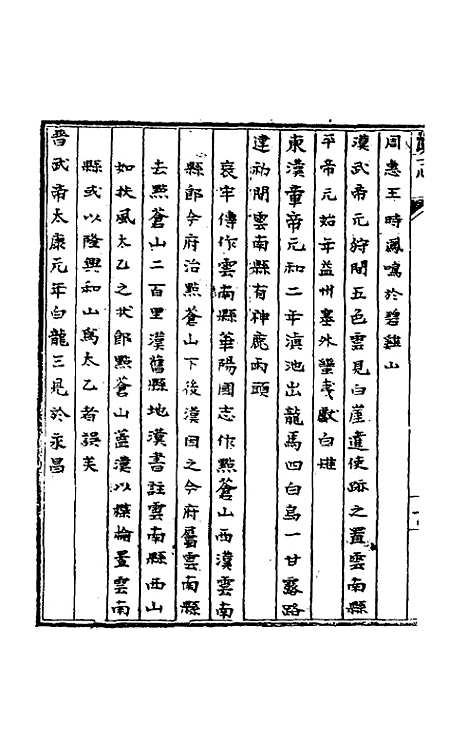 周惠王時鳳鳴於碧雞山
漢武帝元狩間五色雲見白崖遣使跡之置雲南縣
平帝元始年益州塞外蠻夷獻白雉
東漢章帝元和二年滇池出龍馬四白烏一甘露路
建初間雲南縣有神鹿兩頭
哀牢傳作雲南縣華陽國志作點蒼山西漢雲南
縣郎今府治點蒼山下後漢因之今府屬雲南縣
去點蒼山二百里漢舊縣地漢書註雲南縣西山
如扶風太乙之狀郎點蒼山蓋漢以楪榆置雲南
縣或以隆興和山為太乙者誤矣
晉武帝太康元年白龍三見於永昌